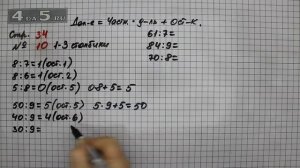 4АО5.RU
Дел-е = Частн. · д-ль + Ост-к.
Стр. 34
№ 10 1-3 столбики
8:7=1(ост.1)
8:6=1(ост.2)
5:8=0(ост.5) 0·8+5=5
50:9=5(ост.5) 5·9+5=50
40:9=4(ост.6)
30:9=
61:7=
84:9=
70:8=